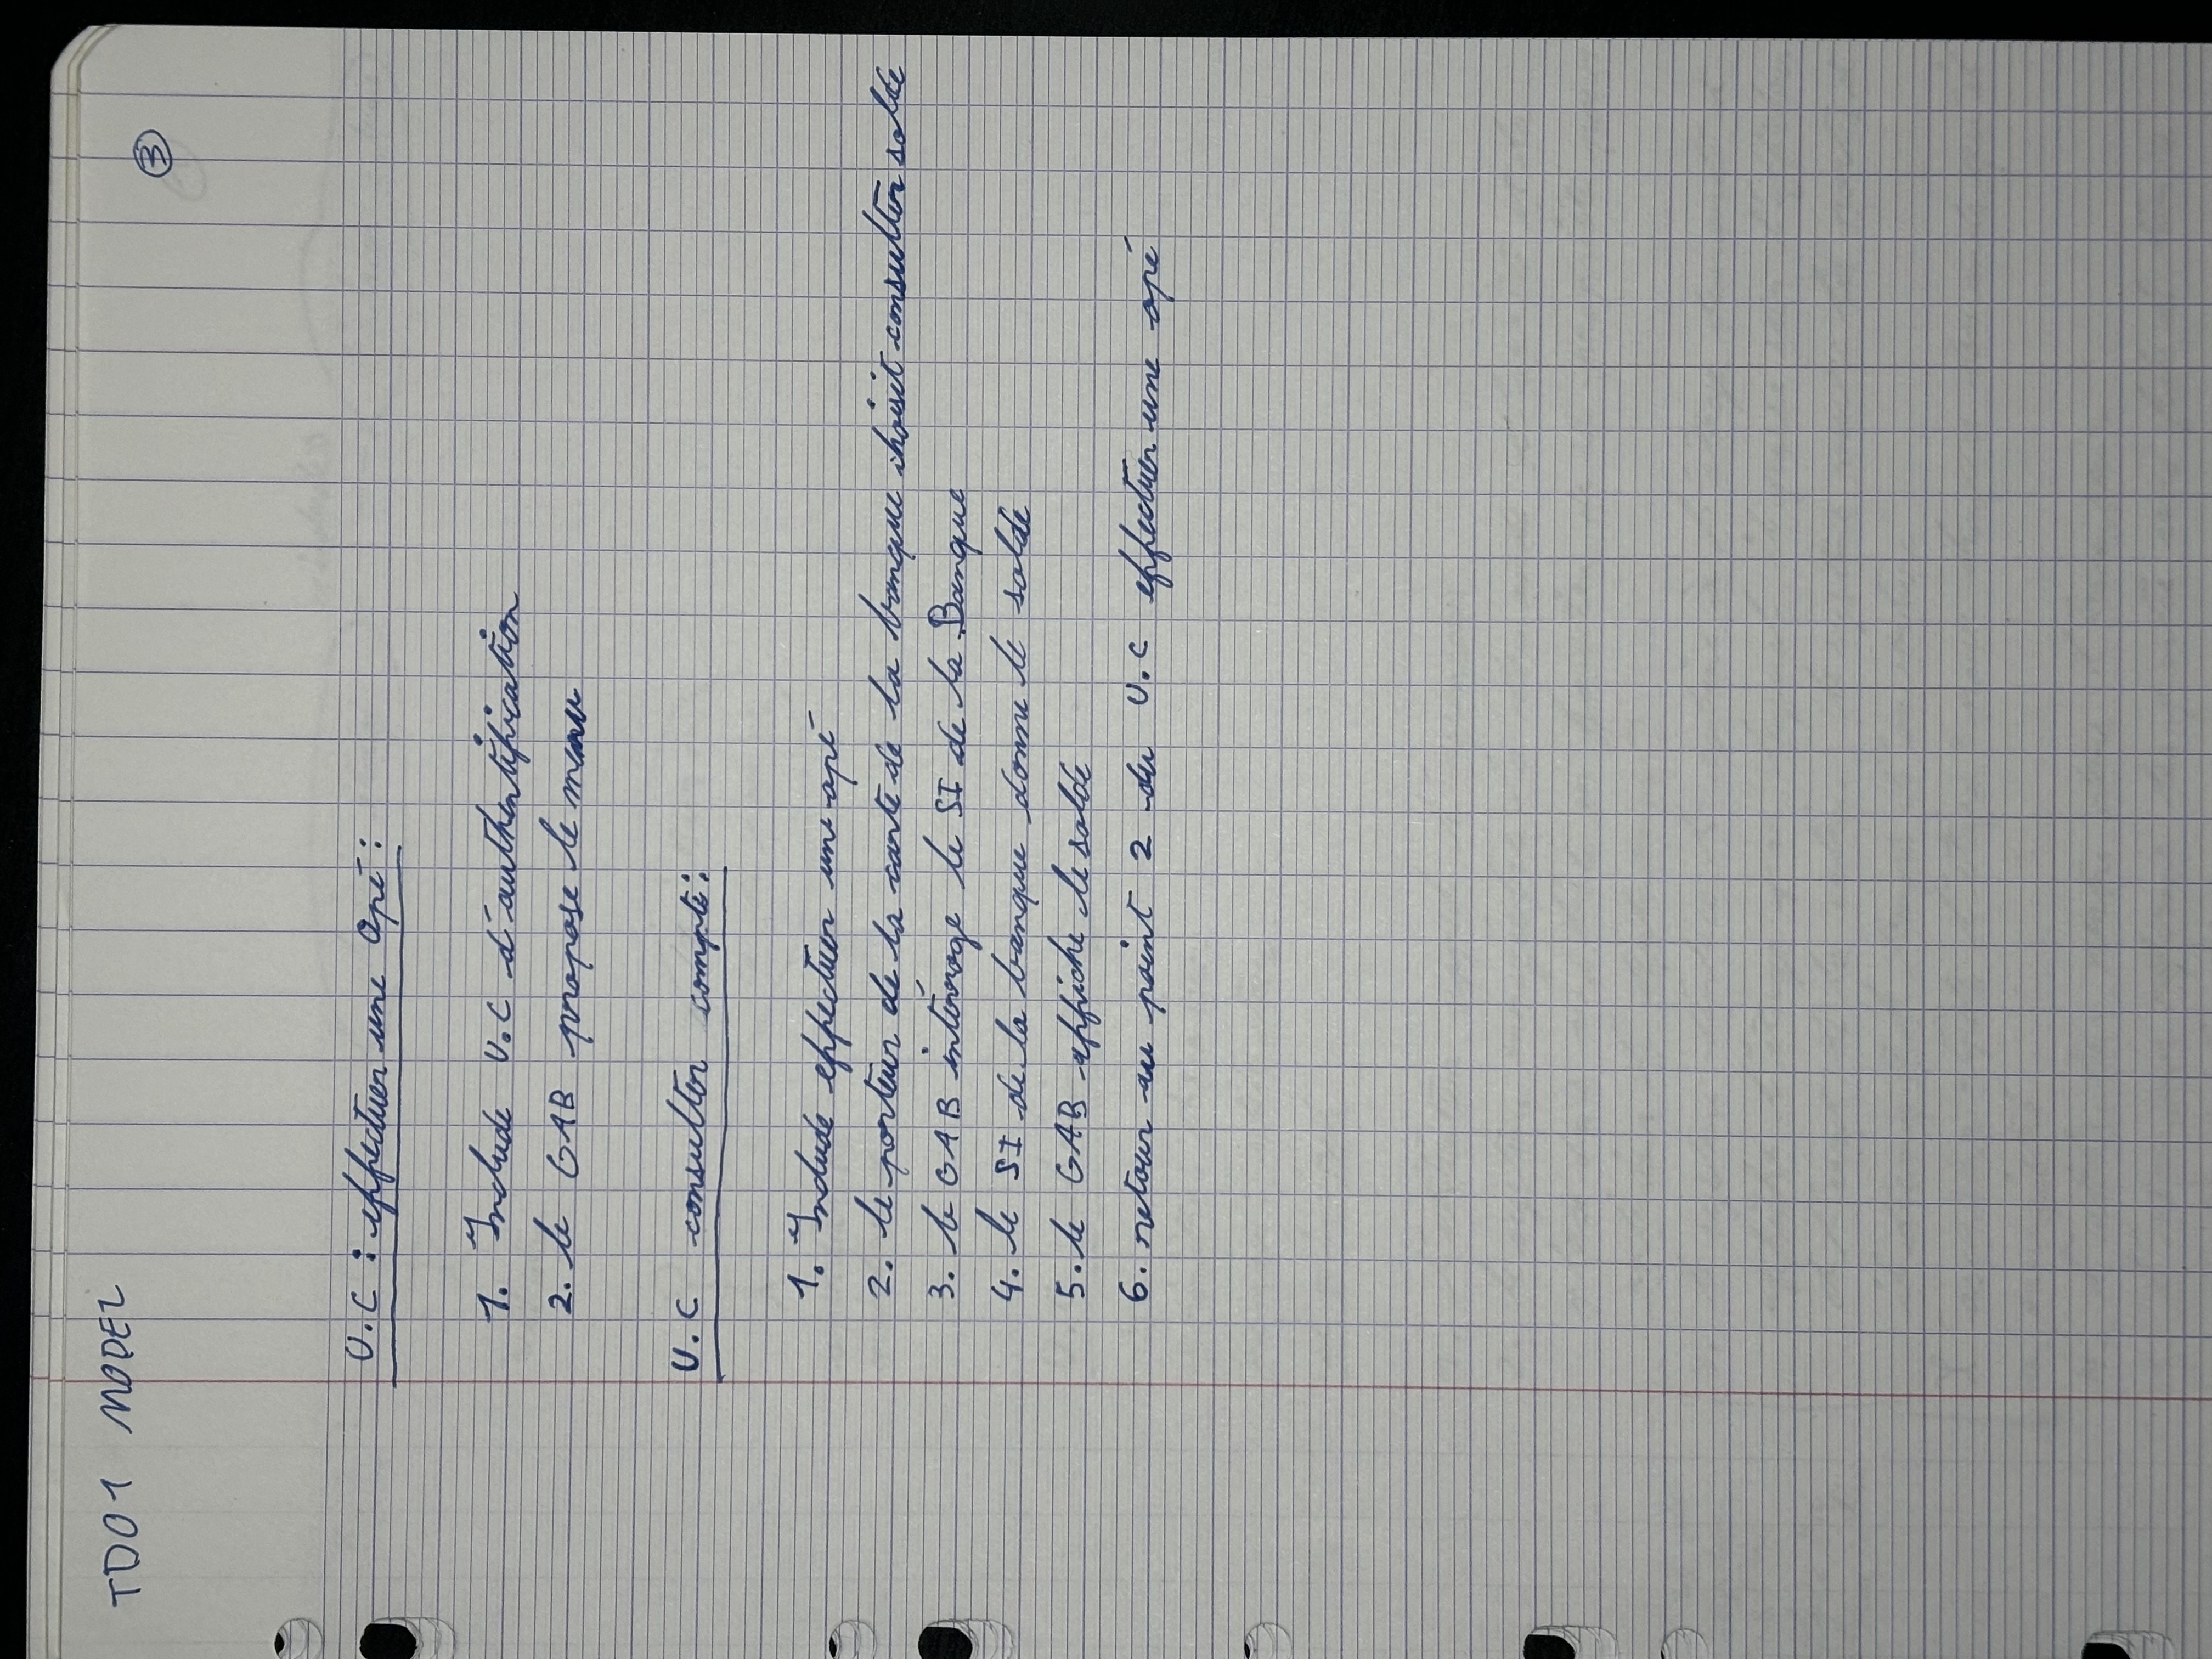 TD01 MODEL
3
U.C : effectuer une Opé :
1. Include U.C d'authentification
2. le GAB propose le menu
U.C consulter compte :
1. Include effectuer une opé
2. le porteur de la carte de la banque choisit consulter solde
3. le GAB intérroge le SI de la Banque
4. le SI de la banque donne le solde
5. le GAB affiche le solde
6. retour au point 2 du U.C effectuer une opé